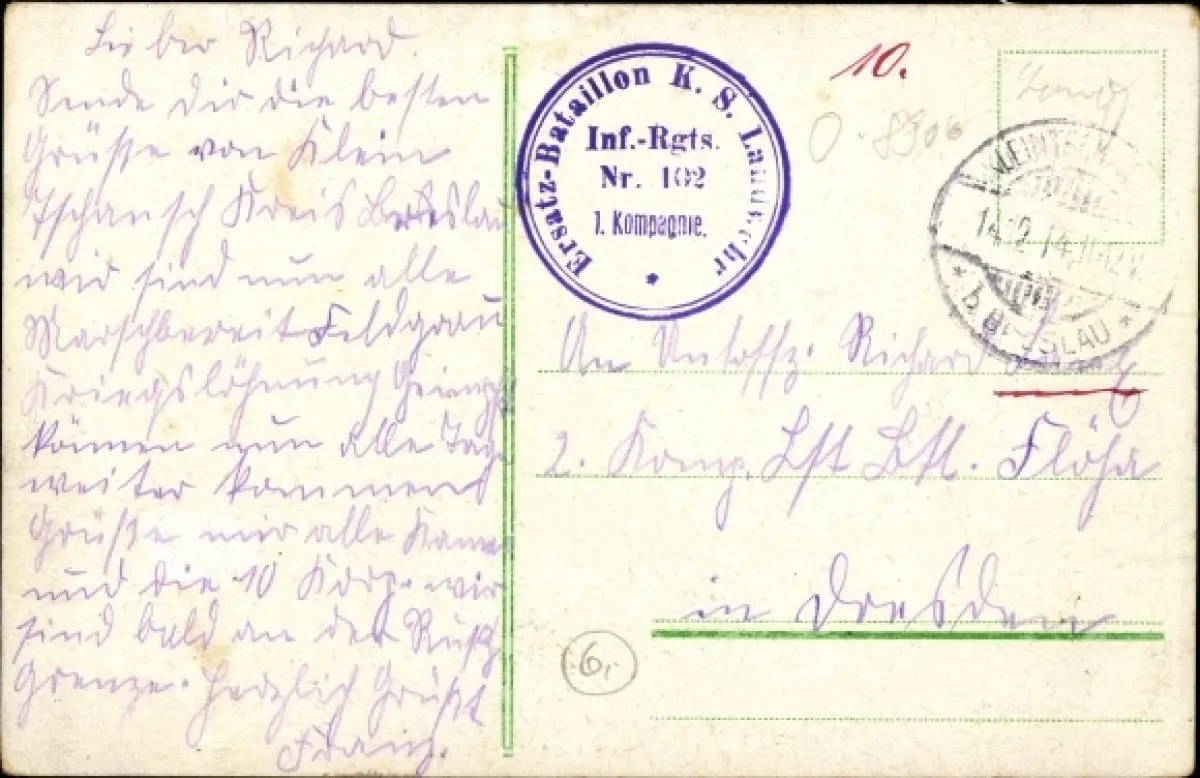 Lieber Richard.
Sende dir die besten
Grüsse von Klein
Tschansch Kreis Breslau
wir sind nun alle
Marschbereit Feldgrau
Kriegslöhnung Geimpft
können nun alle Tage
weiter kommen
Grüße mir alle Kame
und die 10 Korp. wir
sind bald an der Ruß
Grenze. Herzlich Grüßt
Franz.
Ersatz-Bataillon K. S. Landwehr
Inf.-Rgts.
Nr. 102
1. Kompagnie.
10.
KLEINTSCH
14.12.14
b. BRESLAU
An Untoffz. Richard
2. Komp. Lst Btl. Flöha
in Dresden
6,-